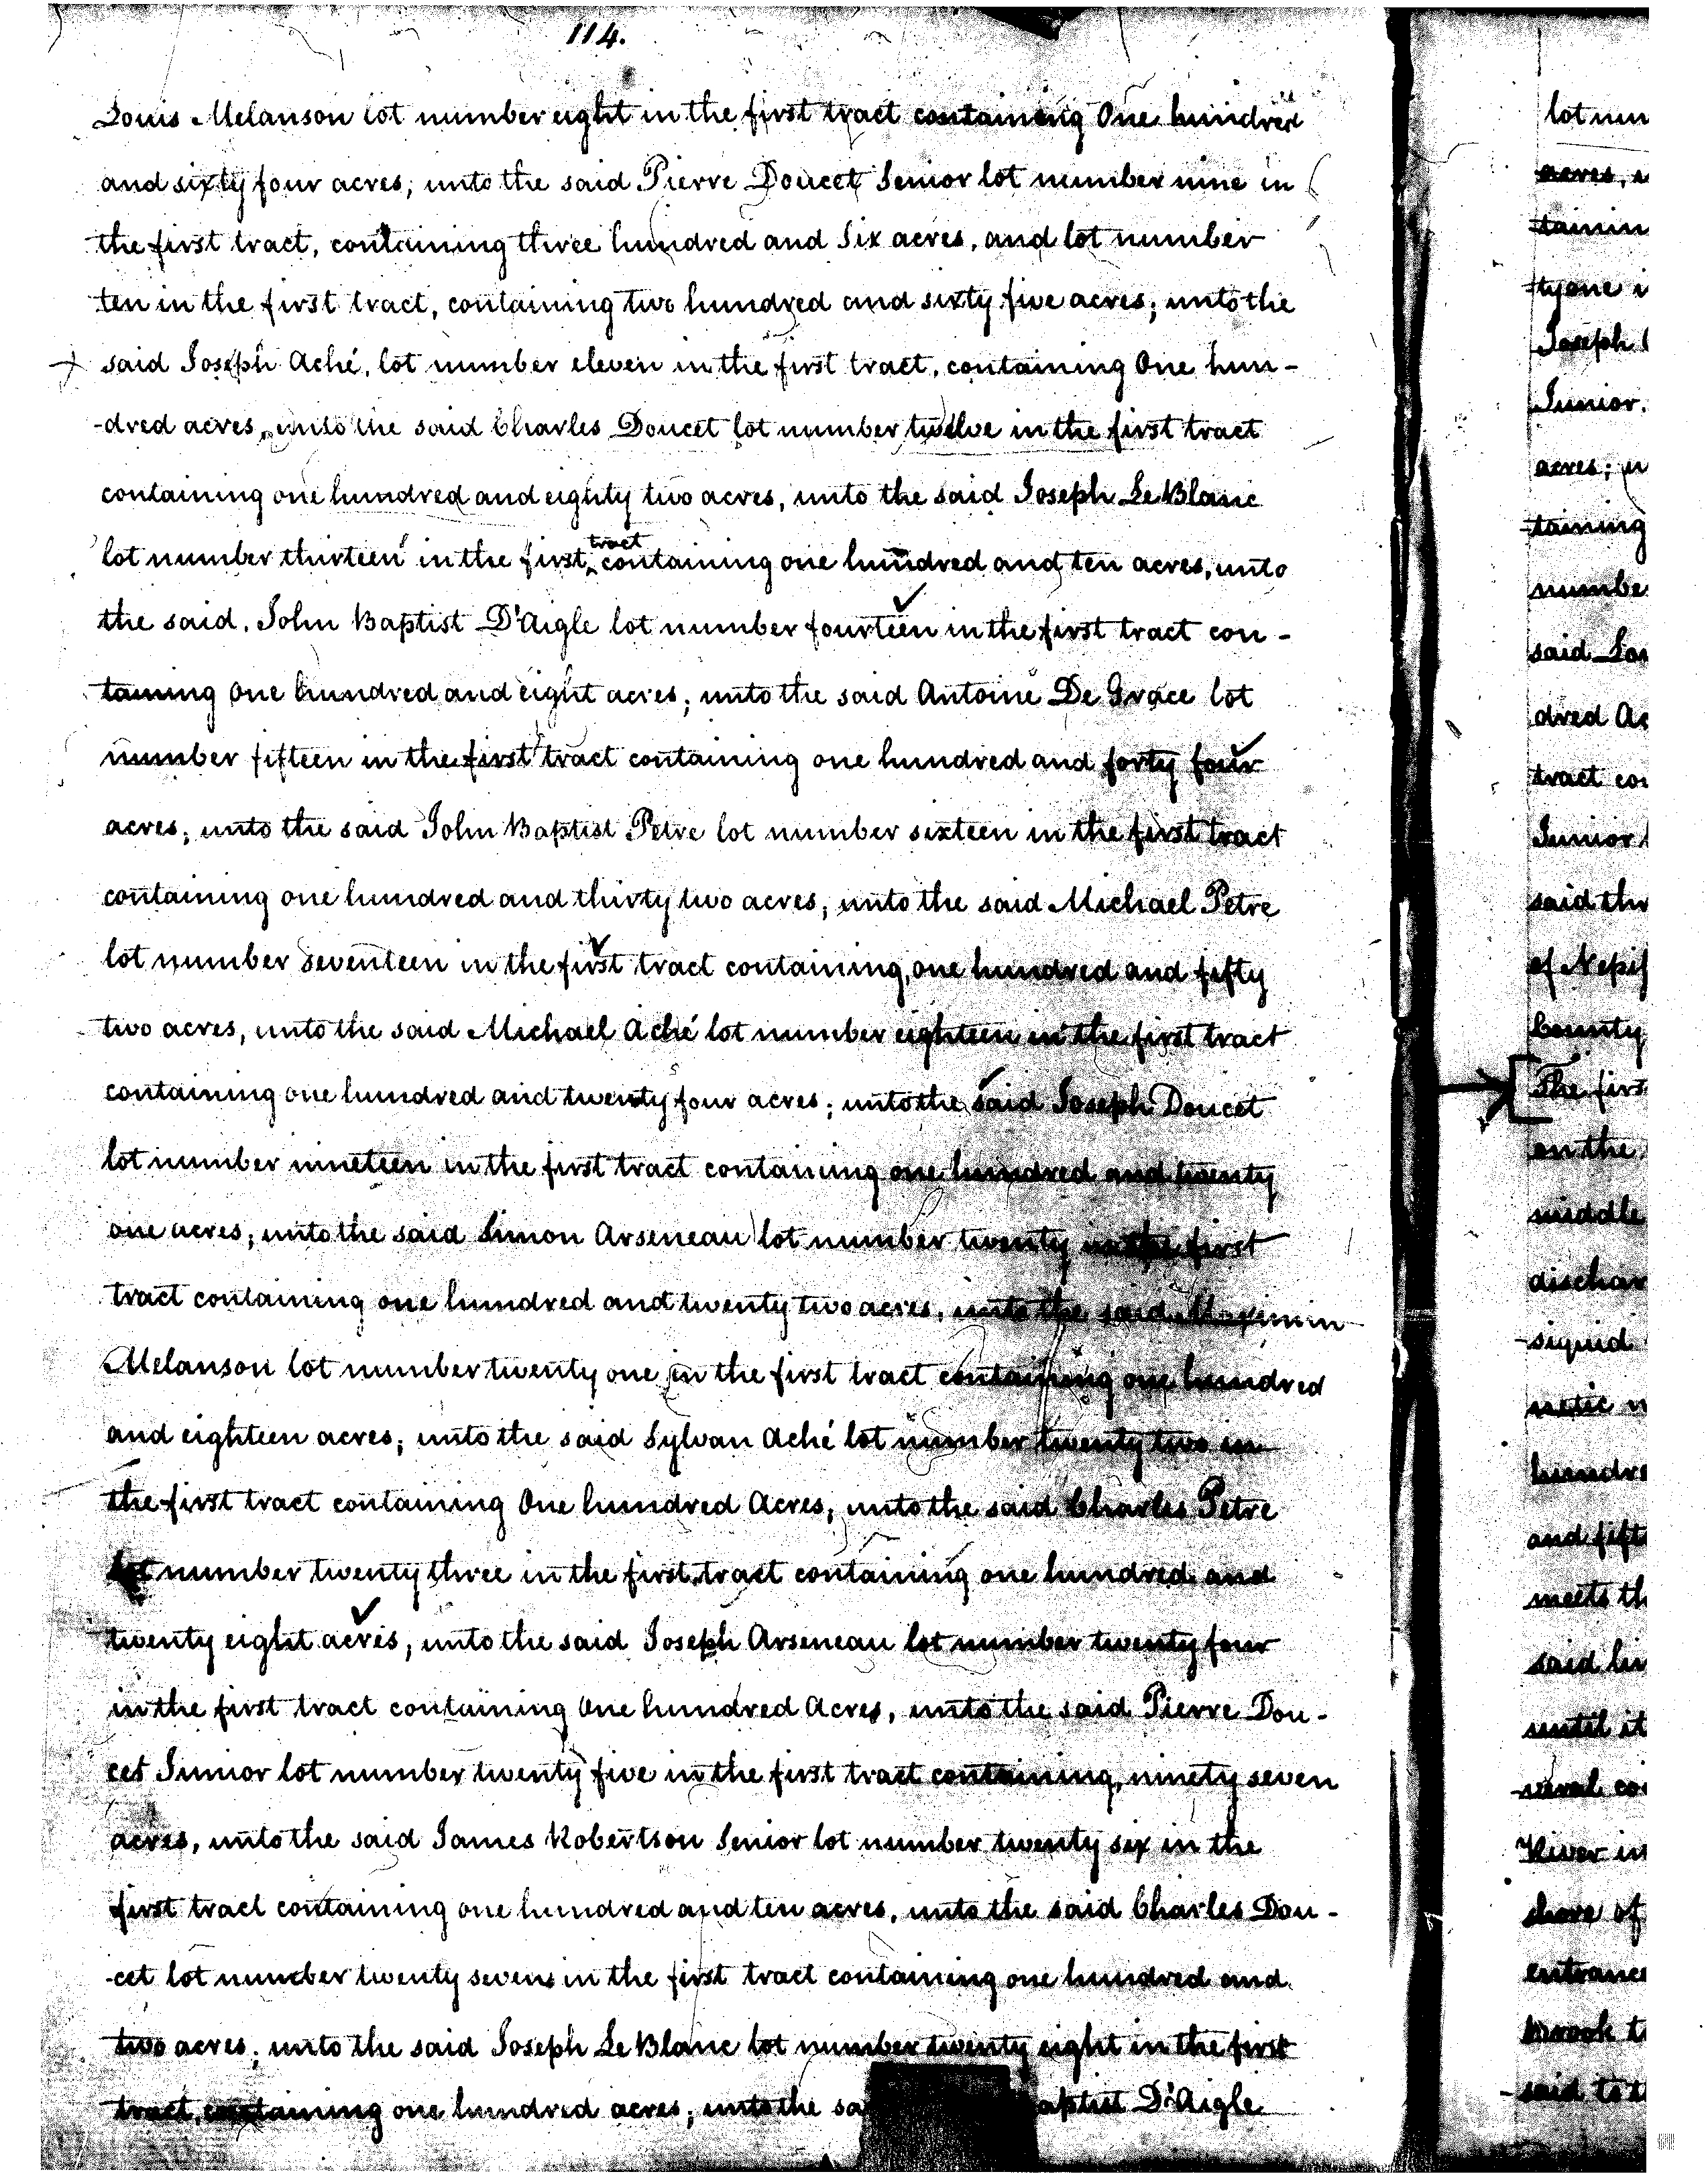 114.
Louis Melanson lot number eight in the first tract containing One hundred
and sixty four acres, unto the said Pierre Doucet Senior lot number nine in
the first tract, containing three hundred and Six acres, and lot number
ten in the first tract, containing two hundred and sixty five acres; unto the
said Joseph Aché, lot number eleven in the first tract, containing One hun-
-dred acres, unto the said Charles Doucet lot number twelve in the first tract
containing one hundred and eighty two acres, unto the said Joseph Le Blanc
lot number thirteen in the first tract containing one hundred and ten acres, unto
the said, John Baptist D'Aigle lot number fourteen in the first tract con-
taining One hundred and eight acres; unto the said Antoine De Grace lot
number fifteen in the first tract containing one hundred and forty four
acres; unto the said John Baptist Petre lot number sixteen in the first tract
containing one hundred and thirty two acres; unto the said Michael Petre
lot number seventeen in the first tract containing, one hundred and fifty
two acres, unto the said Michael Aché lot number eighteen in the first tract
containing one hundred and twenty four acres; unto the said Joseph Doucet
lot number nineteen in the first tract containing one hundred and twenty
one acres; unto the said Simon Arseneau lot number twenty in the first
tract containing one hundred and twenty two acres, unto the said Maximin
Melanson lot number twenty one in the first tract containing one hundred
and eighteen acres; unto the said Sylvan Aché lot number twenty two in
the first tract containing One hundred Acres, unto the said Charles Petre
lot number twenty three in the first tract containing one hundred and
twenty eight acres, unto the said Joseph Arseneau lot number twenty four
in the first tract containing One hundred Acres, unto the said Pierre Dou-
cet Junior lot number twenty five in the first tract containing, ninety seven
acres, unto the said James Robertson Senior lot number twenty six in the
first tract containing one hundred and ten acres, unto the said Charles Dou-
-cet lot number twenty seven in the first tract containing one hundred and
two acres; unto the said Joseph Le Blanc lot number twenty eight in the first
tract, containing one hundred acres; unto the sa aptist D'Aigle
lot num
acres, u
tainin
ty one i
Joseph
Junior,
acres; u
taining
numbe
said Lou
dred Ac
tract con
Junior
said thr
of Nepis
County
The firs
on the
middle
dischar
-siquid
netic m
hundre
and fift
meets th
said lin
until it
-veral co
River in
shore of
entrance
Brook t
said to t